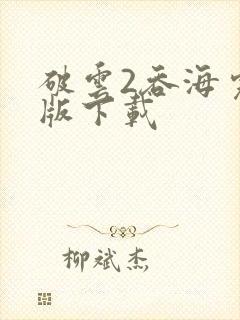 破雲2吞海完
版下載
柳斌杰